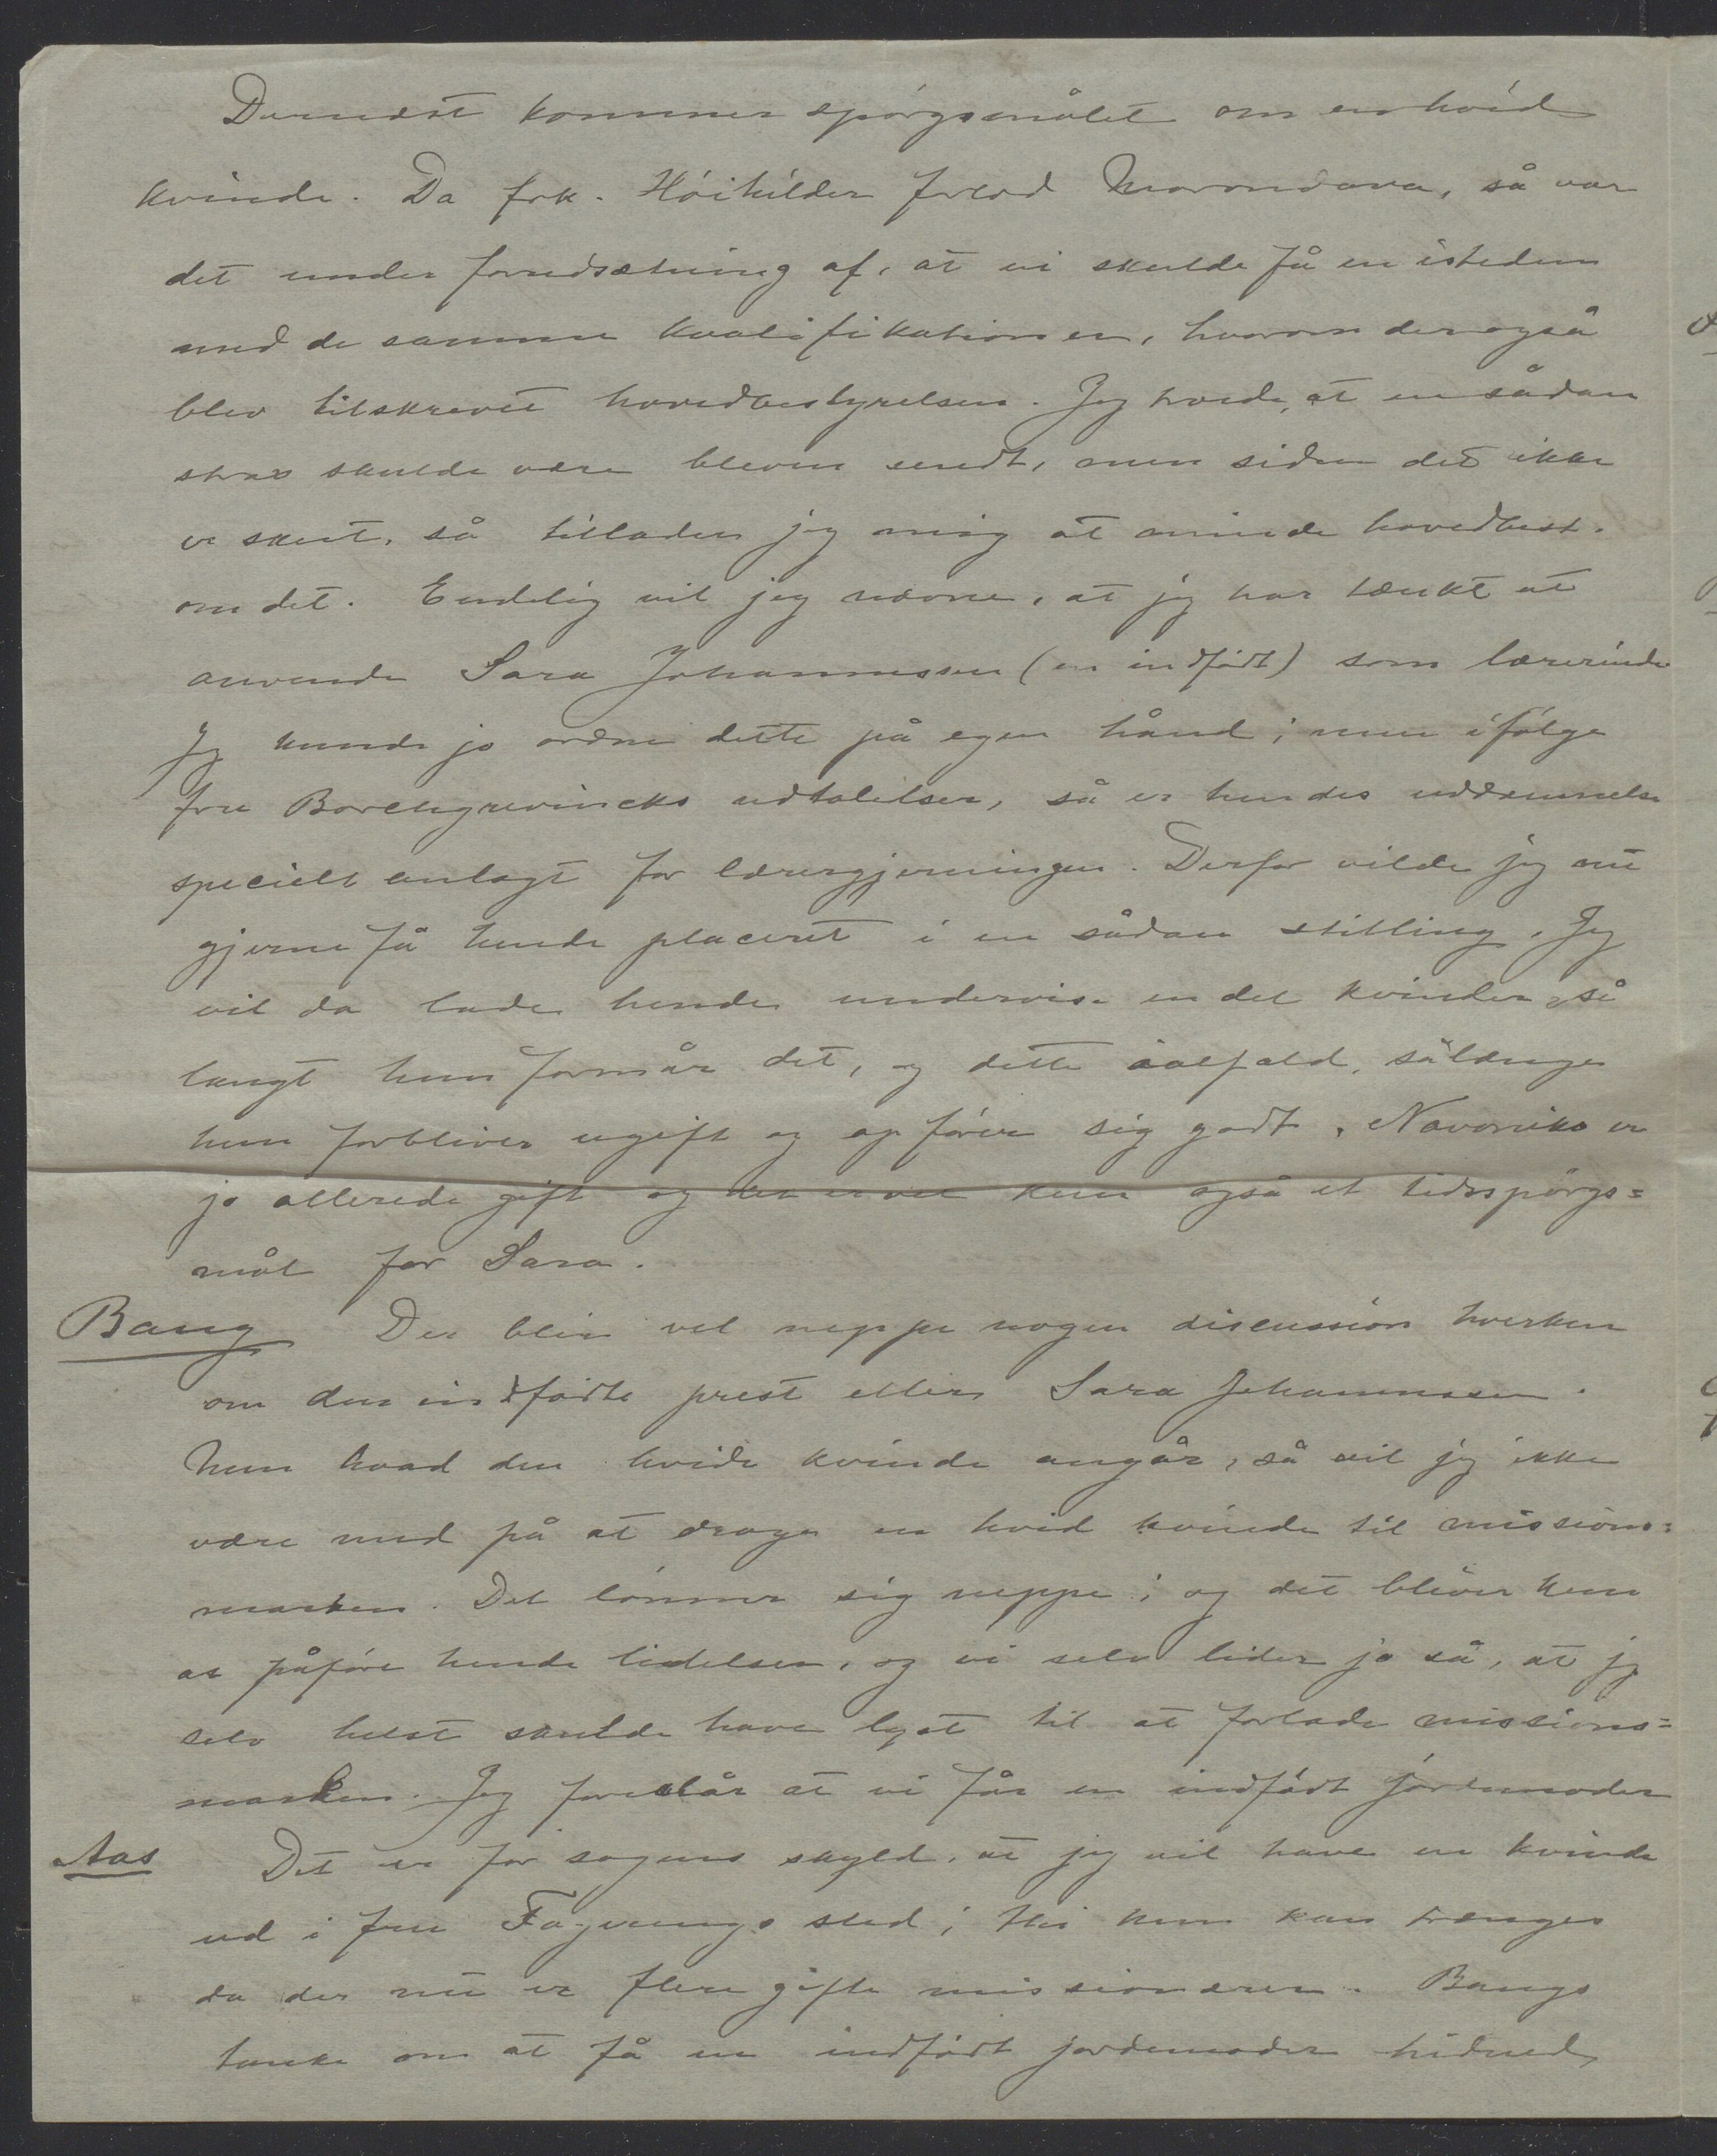 Dernæst kommer spörgsmålet om en hvid
kvinde. Da frk. Höihilder forlod Morondava, så var
det under forudsætning af, at vi skulde få en isteden
med de samme kvalifikationer, hvorom der også
blev tilskrevet hovedbestyrelsen. Jeg troede, at en sådan
strax skulde være bleven sendt, men siden det ikke
er skeet, så tillader jeg mig at minde hovedbest.
om det. Endelig vil jeg nævne, at jeg har tænkt at
anvende Sara Johannessen (en indfödt) som lærerinde
Jeg kunde jo ordne dette på egen hånd; men ifölge
fru Borchgrevincks udtalelser, så er hendes uddannelse
specielt anlagt for lærergjerningen. Derfor vilde jeg nu
gjerne få hende placeret i en sådan stilling. Jeg
vil da lade hende undervise en del kvinder, så
langt hun formår det, og dette ialfald, sålænge
hun forbliver ugift og opförer sig godt. Navoniko er
jo allerede gift og det er vel kun også et tidsspörgs=
mål for Sara.
Bang Der blir vel neppe nogen discussion hverken
om den indfödte prest eller Sara Johannessen.
Men hvad den hvide kvinde angår, så vil jeg ikke
være med på at drage en hvid kvinde til missions=
marken. Det lönner sig neppe; og det bliver kun
at påföre hende lidelser, og vi selv lider jo så, at jeg
selv helst skulde have lyst til at forlade missions=
marken. Jeg foreslår at vi får en indfödt jordemoder
Aas Det er for sagens skyld, at jeg vil have en kvinde
ud i fru Fagerengs sted; thi hun kan trænges
da der nu er flere gifte missionærer. Bangs
tanke om at få en indfödt jordemoder hidned,